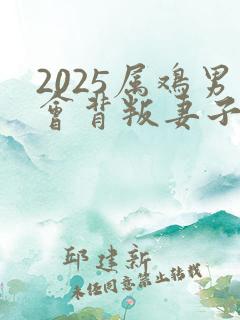 2025属鸡男
会背叛妻子
邱建新
未经同意禁止转载